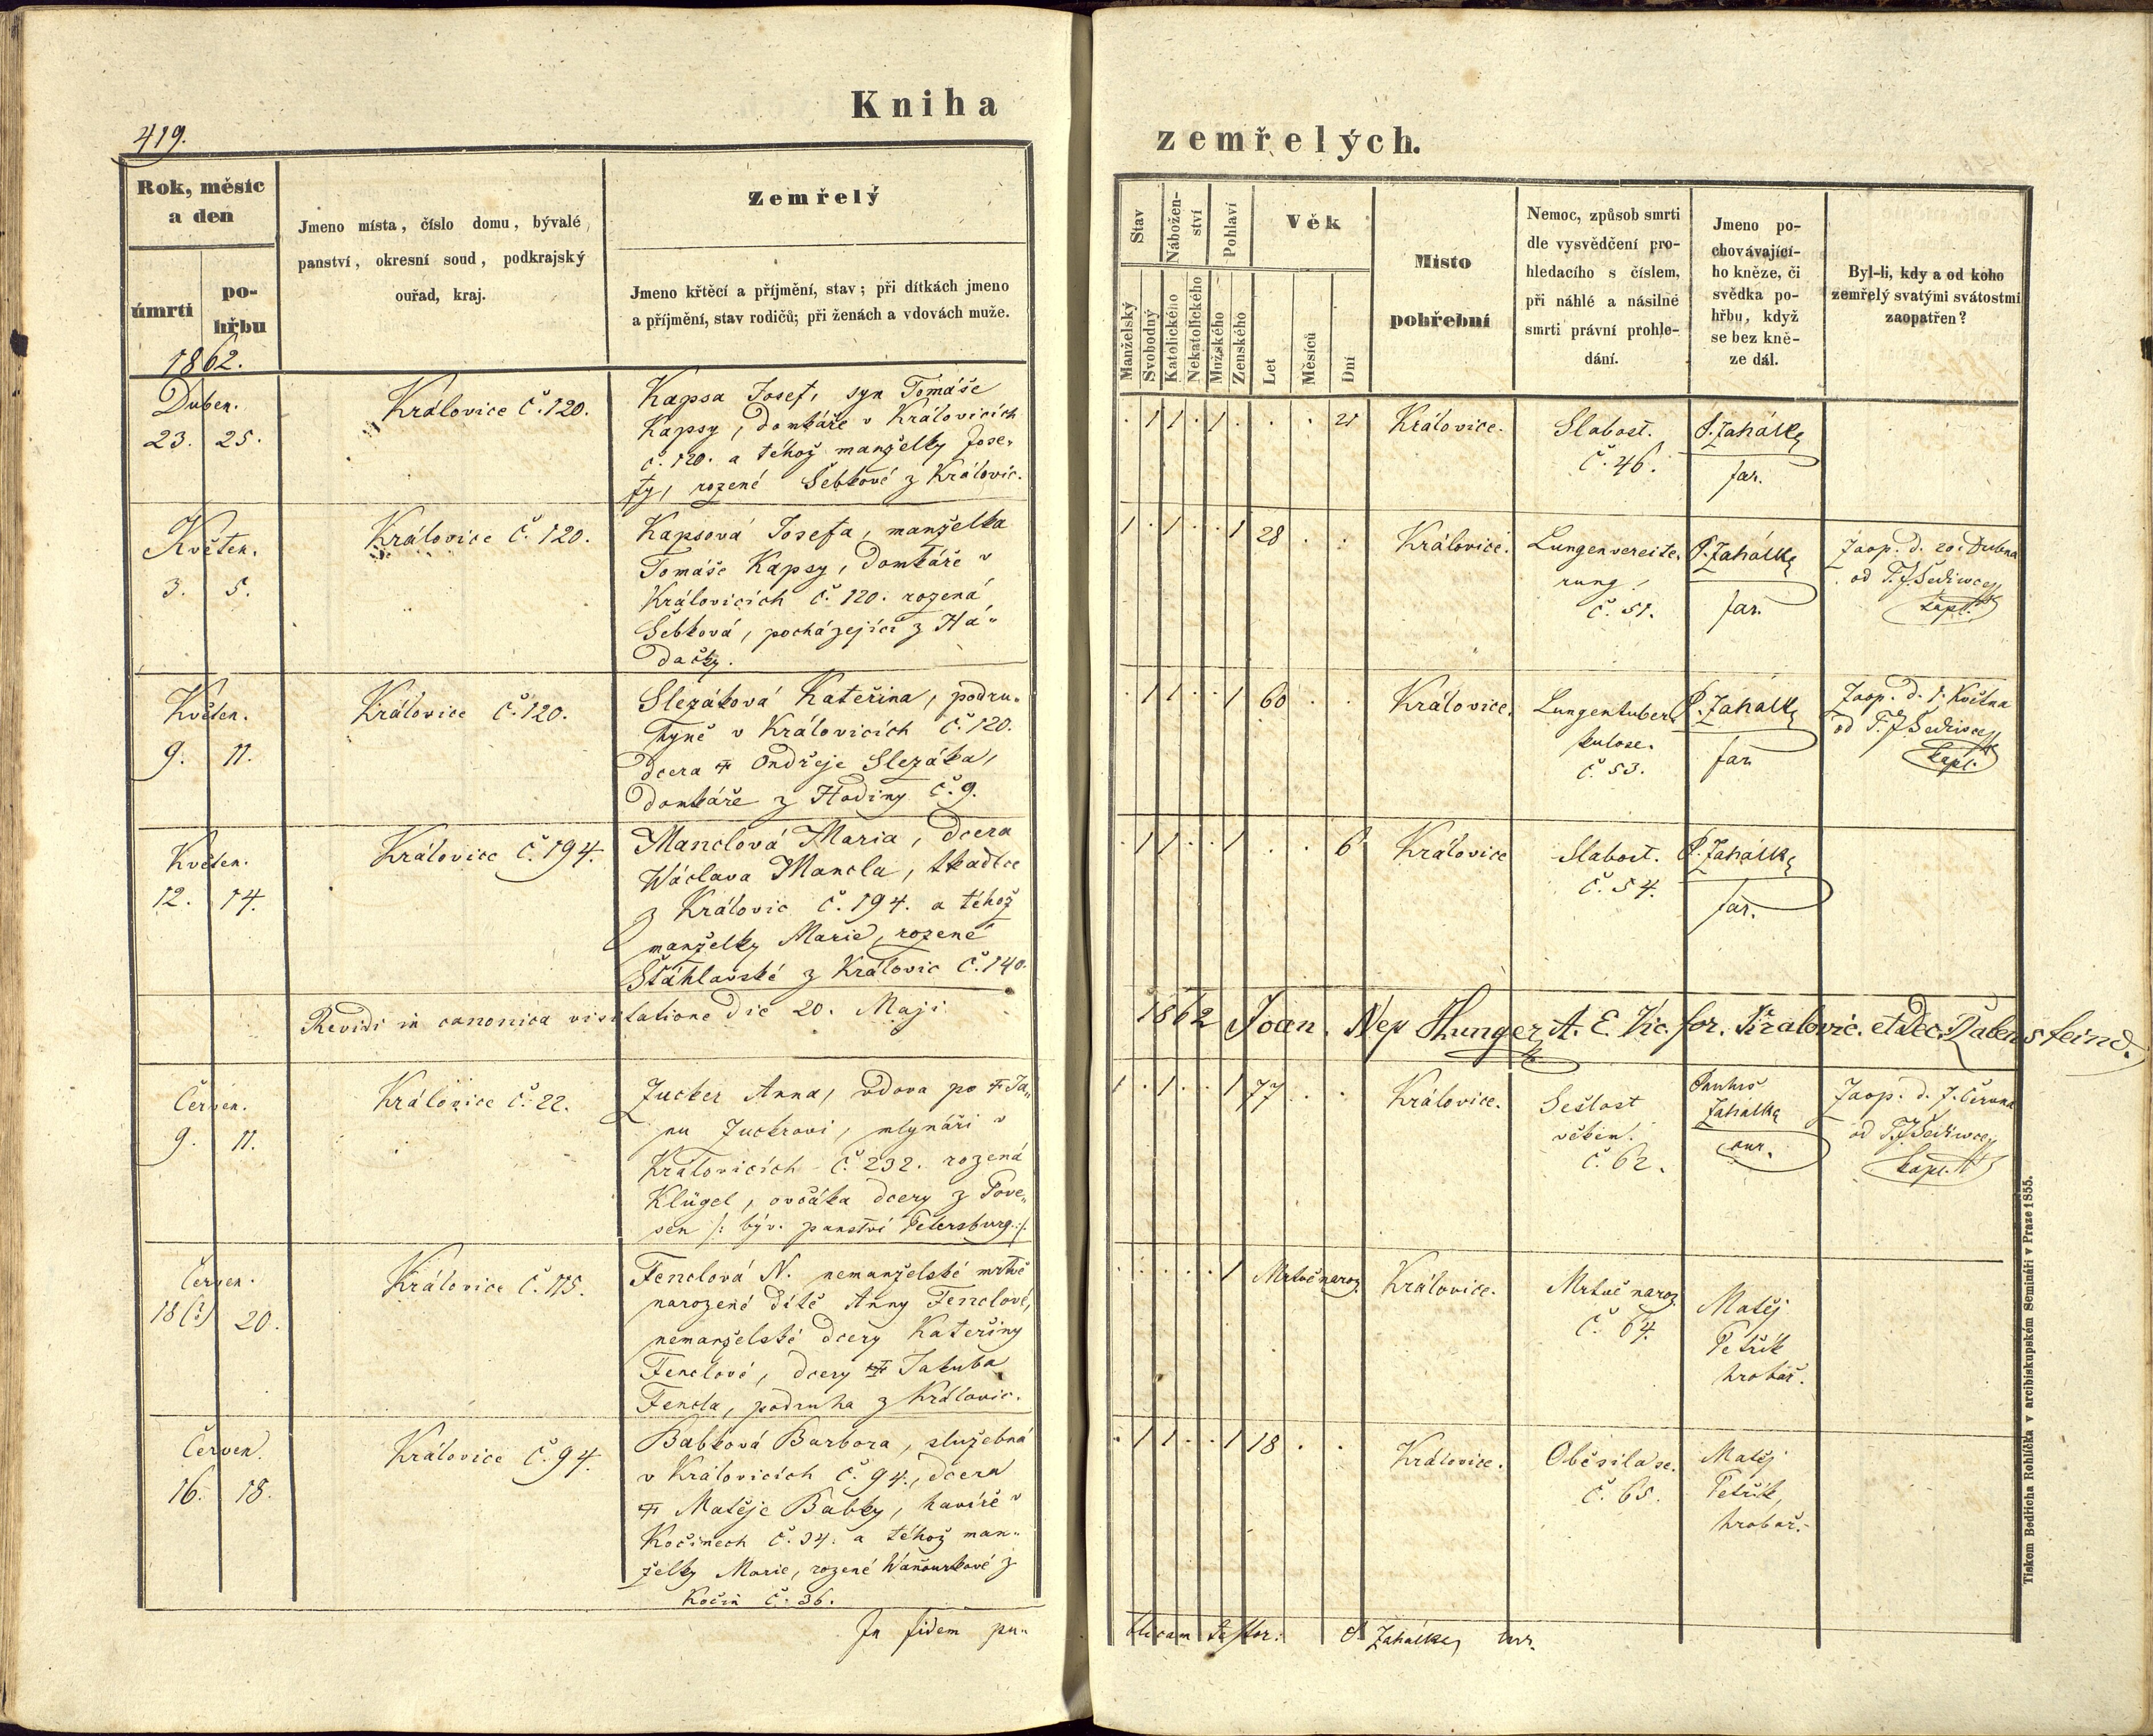 Kniha
zemřelých.
419.
Rok, měsíc
a den
úmrti
po-
hřbu
1862.
Jmeno místa, číslo domu, bývalé
panství, okresní soud, podkrajský
ouřad, kraj.
Zemřelý
Jmeno křtěcí a příjmění, stav; při dítkách jmeno
a příjmění, stav rodičů; při ženách a vdovách muže.
Stav
Manželský
Svobodný
Nábožen-
ství
Katolického
Nekatolického
Pohlaví
Mužského
Ženského
Věk
Let
Měsíců
Dní
Místo
pohřební
Nemoc, způsob smrti
dle vysvědčení pro-
hledacího s číslem,
při náhlé a násilné
smrti právní prohle-
dání.
Jmeno po-
chovávající-
ho kněze, či
svědka po-
hřbu, když
se bez kně-
ze dál.
Byl-li, kdy a od koho
zemřelý svatými svátostmi
zaopatřen?
Duben.
23. 25.
Královice č. 120.
Kapsa Josef, syn Tomáše
Kapsy, domkáře v Královicích
č. 120. a téhož manželky Jose-
fy, rozené Šebkové z Královic.
. 1 1 . 1 . . . 21
Královice.
Slabost.
č. 46.
P. Zahálka
far.
Květen.
3. 5.
Královice č. 120.
Kapsová Josefa, manželka
Tomáše Kapsy, domkáře v
Královicích č. 120. rozená
Šebková, pocházející z Há-
dačky.
1 . 1 . . 1 28 . .
Královice.
Lungenvereite-
rung.
č. 51.
P. Zahálka
far.
Zaop. d. 20. Dubna
od P. J. Šediwce
kapl.
Květen.
9. 11.
Královice č. 120.
Slezáková Kateřina, podru-
hyně v Královicích č. 120.
dcera † Ondřeje Slezáka,
domkáře z Hodiny č. 9.
. 1 1 . . 1 60 . .
Královice.
Lungentuber-
kulose.
č. 53.
P. Zahálka
far.
Zaop. d. 1. Května
od P. J. Šediwce
kapl.
Květen.
12. 14.
Královice č. 194.
Manclová Maria, dcera
Wáclava Mancla, tkadlce
z Královic č. 194. a téhož
manželky Marie, rozené
Šťáhlavské z Královic č. 140.
. 1 1 . . 1 . . 6
Královice
Slabost.
č. 54.
P. Zahálka
far.
Revidi in canonica visitatione die 20. Maji
1862 Joan. Nep Hunger A. E. Vic. for. Kralovic. et Dec. Rabensteind.
Červen.
9. 11.
Královice č. 22.
Zucker Anna, vdova po † Ja-
nu Zuckrovi, mlynáři v
Královicích č. 232. rozená
Klügel, ovčáka dcery z Pove-
sen /: býv. panství Petersburg.:/
1 . 1 . . 1 77 . .
Královice.
Sešlost
věkem.
č. 62.
Zahálka
cur.
Zaop. d. 7. Června
od P. J. Šediwce
kapl.
Červen.
18(?) 20.
Královice č. 115.
Fenclová N. nemanželské mrtvě
narozené dítě Anny Fenclové,
nemanželské dcery Kateřiny
Fenclové, dcery † Jakuba
Fencla, podruha z Královic.
. . . . . 1 Mrtvě naroz.
Královice.
Mrtvě naroz.
č. 64.
Matěj
Petřík
hrobař.
Červen.
16. 18.
Královice č. 94.
Babková Barbora, služebná
v Královicích č. 94., dcera
† Matěje Babky, havíře v
Kočinech č. 34. a téhož man-
želky Marie, rozené Waňourkové z
Kočin č. 36.
. 1 1 . . 1 18 . .
Královice.
Oběsila se.
č. 65.
Matěj
Petřík,
hrobař.
In fidem pu-
blicam testor: P. Zahálka, cur.
Tiskem Bedřicha Rohlíčka v arcibiskupském Semináři v Praze 1855.